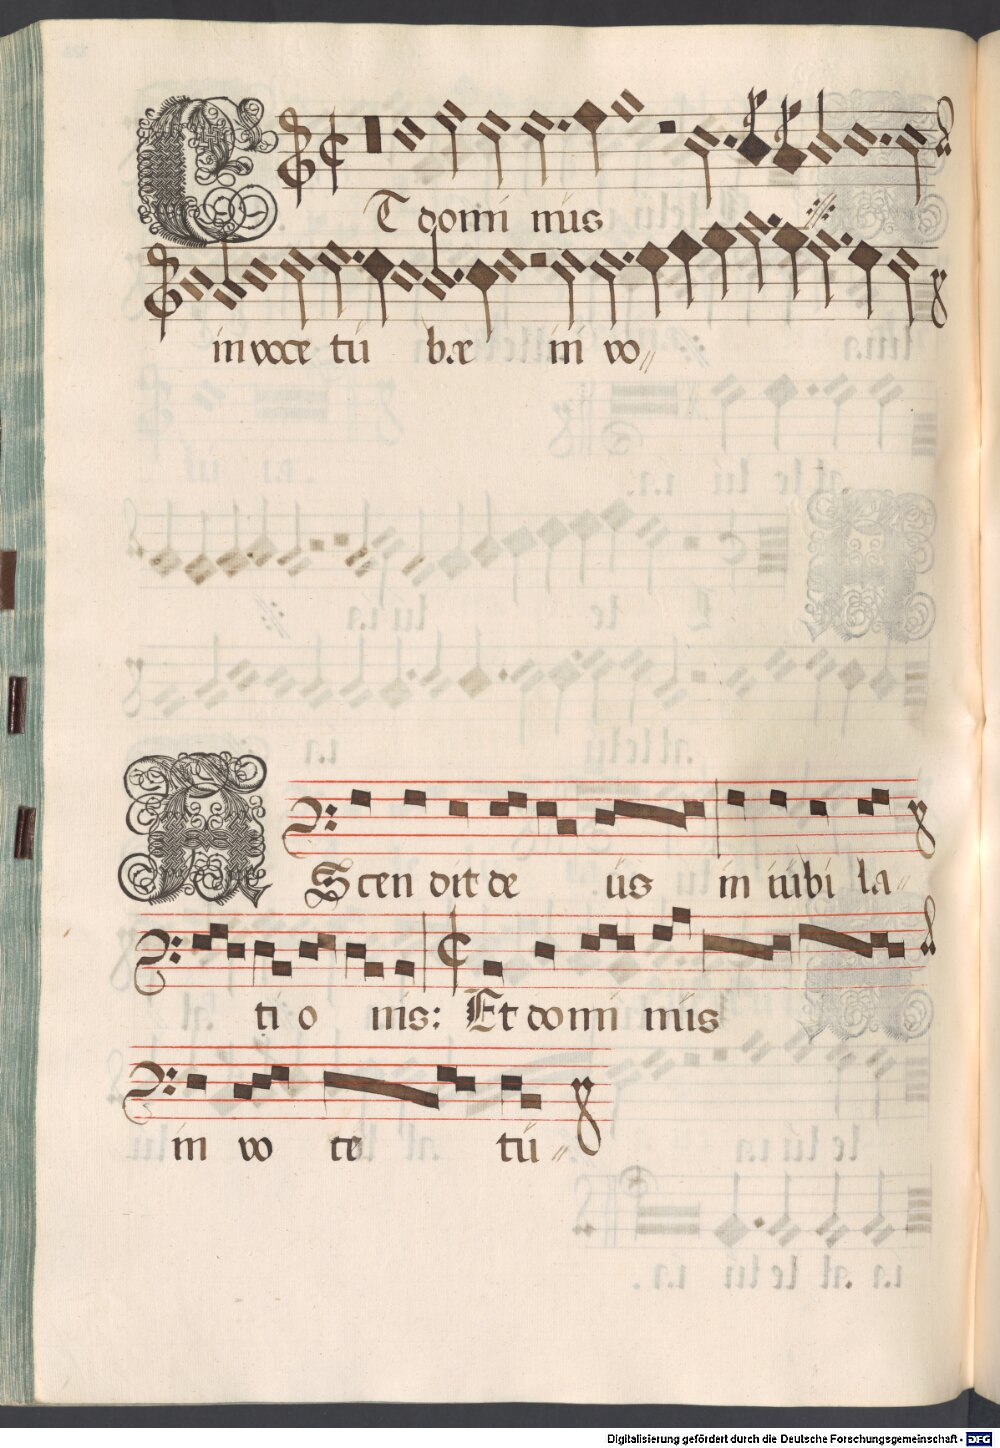 ET domi nus
in voce tu bæ in vo
AScen dit de us in iubi la
ti o nis: Et domi nus
in vo ce tu
Digitalisierung gefördert durch die Deutsche Forschungsgemeinschaft - DFG